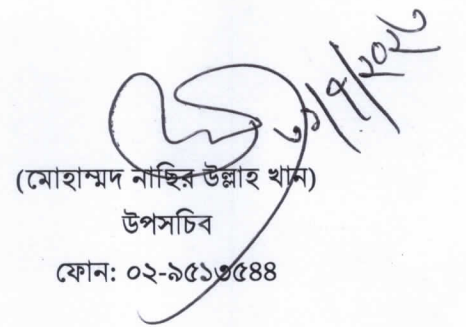 (মোহাম্মদ নাছির উল্লাহ খান)
উপসচিব
ফোন: ০২-৯৫১৩৫৪৪